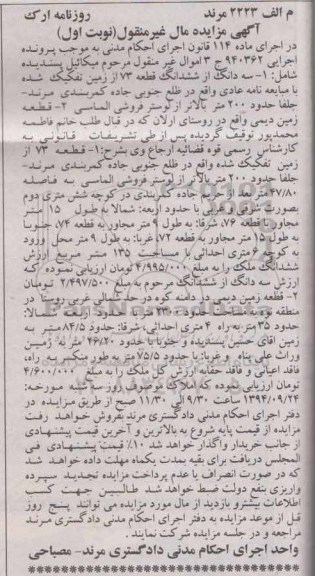 م الف ۲۲۲۳ مرند                روزنامه ارک
آگهی مزایده مال غیرمنقول(نوبت اول)
در اجرای ماده ۱۱۴ قانون اجرای احکام مدنی به موجب پرونده
اجرایی ۹۴۰۳۶۲ ج ۳ اموال غیر منقول مرحوم میکائیل پسندیده
شامل: ۱- سه دانگ از ششدانگ قطعه ۷۳ از زمین تفکیک شده
با مبایعه نامه عادی واقع در ظلع جنوبی جاده کمربندی مرند-
جلفا حدود ۲۰۰ متر بالاتر ازلوستر فروشی الماسی ۲- قطعه
زمین دیمی واقع در روستای ارلان که در قبال طلب خانم فاطمه
محمدپور توقیف گردیده پس از طی تشریفات قانونی به
کارشناس رسمی قوه قضائیه ارجاع وی بشرح:۱- قطعه ۷۳ از
زمین تفکیک شده واقع در ظلع جنوبی جاده کمربندی مرند-
جلفا حدود ۲۰۰ متر بالاتر از لوستر فروشی الماسی به فاصله
۴۷/۸۰ متر بعد از حریم جاده کمربندی در کوچه شش متری دوم
بصورت شرقی و غربی با حدود اربعه: شمالا به طول ۱۵ متر
مجاور با قطعه ۷۶، شرقا: به طول ۹ متر مجاور به قطعه ۷۴، جنوبا
به طول ۱۵ متر مجاور به قطعه ۷۲، غربا: به طول ۹ متر محل ورود
به کوچه ۶ متری احداثی با مساحت ۱۳۵ متر مربع ارزش
ششدانگ ملک را به مبلغ ۴/۹۹۵/۰۰۰ تومان ارزیابی نموده که
ارزش سه دانگ از ششدانگ مرحوم به مبلغ ۲/۴۹۷/۵۰۰ تومان
۲- قطعه زمین دیمی در دامنه کوه در حد شمالی غربی روستا در
حدود ۳۵ متر به راه ۴ متری احداثی، شرقا: حدود ۸۴/۵ متر به
زمین آقای حسین پسندیده و جنوبا با حدود ۴۶/۲۰ متر به زمین
وراث علی پناه و غربا: با حدود ۷۵/۵ متر به طور منکسر به راه،
فاقد اعیانی و فاقد حقابه ارزش کل ملک را به مبلغ ۴/۶۰۰/۰۰۰
تومان ارزیابی نموده که املاک موصوف روز سه شنبه مورخه:
۱۳۹۴/۰۹/۲۴ ساعت ۹/۳۰ الی ۱۱/۳۰ صبح از طریق مزایده در
دفتر اجرای احکام مدنی دادگستری مرند بفروش خواهد رفت
مزایده از قیمت پایه شروع به بالاترین و آخرین قیمت پیشنهادی
از جانب خریدار واگذار خواهد شد ۱۰٪ قیمت پیشنهادی فی
المجلس دریافت برای بقیه بمدت یکماه مهلت داده خواهد شد
که در صورت انصراف یا عدم پرداخت مزایده تجدید سپرده
واریزی بنفع دولت ضبط خواهد شد طالبین جهت کسب
اطلاعات بیشتر و بازدید از مال مورد مزایده می توانند پنج روز
قبل از موعد مزایده به دفتر اجرای احکام مدنی دادگستری مرند
مراجعه و در جلسه مزایده شرکت نمایند.
واحد اجرای احکام مدنی دادگستری مرند- مصباحی